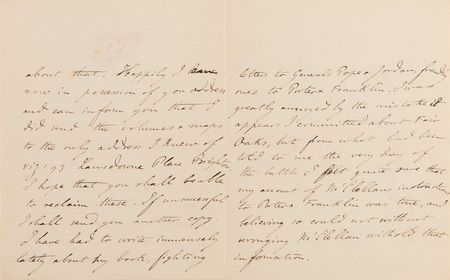 about that. Happily I am
now in possession of you address
and can inform you that I
did send the volumes & maps
to the only address I knew of
viz: 93 Lansdowne Place Brighton
I hope that you shall be able
to reclaim these. If unsuccessful
I shall send you another copy.
I have had to write immensely
lately about my book, fighting
letters to Generals Pope & Jordan, friendly
ones to Porter & Franklin. I was
greatly annoyed by the mistake it
appears I committed about Fair
Oaks, but from what had been
told to me the very day of
the battle I felt quite sure that
my account of McClellan instructions
to Porter & Franklin was true, and
believing so could not without
wronging McClellan withold that
information.